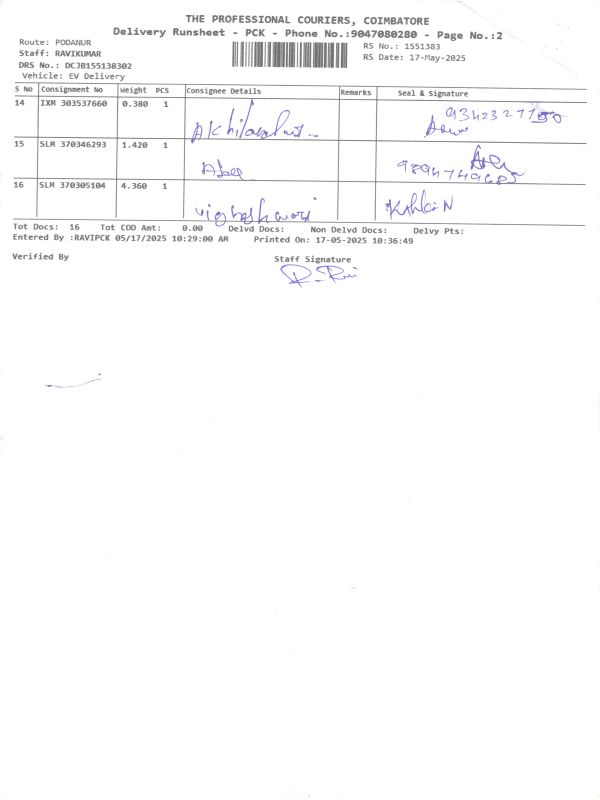 THE PROFESSIONAL COURIERS, COIMBATORE
Delivery Runsheet - PCK - Phone No.:9047080280 - Page No.:2
Route: PODANUR
Staff: RAVIKUMAR
DRS No.: DCJB155138302
Vehicle: EV Delivery
RS No.: 1551383
RS Date: 17-May-2025
S No Consignment No Weight PCS Consignee Details Remarks Seal & Signature
14 IXM 303537660 0.380 1
15 SLM 370346293 1.420 1
16 SLM 370305104 4.360 1 vigneshwari
Tot Docs: 16 Tot COD Amt: 0.00 Delvd Docs: Non Delvd Docs: Delvy Pts:
Entered By :RAVIPCK 05/17/2025 10:29:00 AM Printed On: 17-05-2025 10:36:49
Verified By Staff Signature